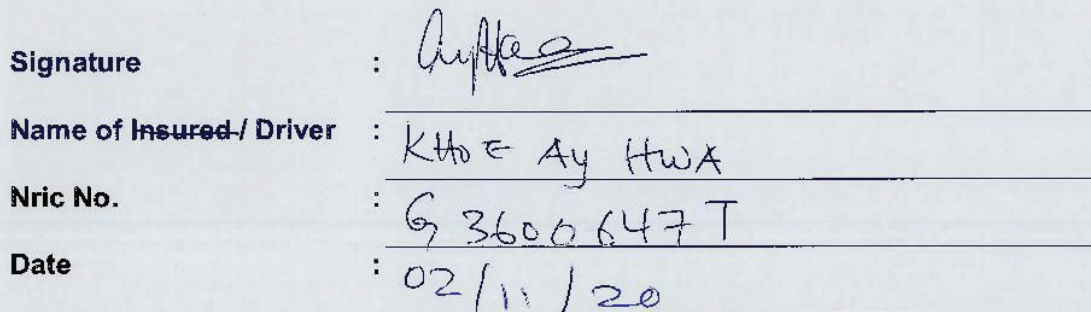 Signature :
Name of Insured / Driver : KHOE Ay HWA
Nric No. : G3600647T
Date : 02/11/20